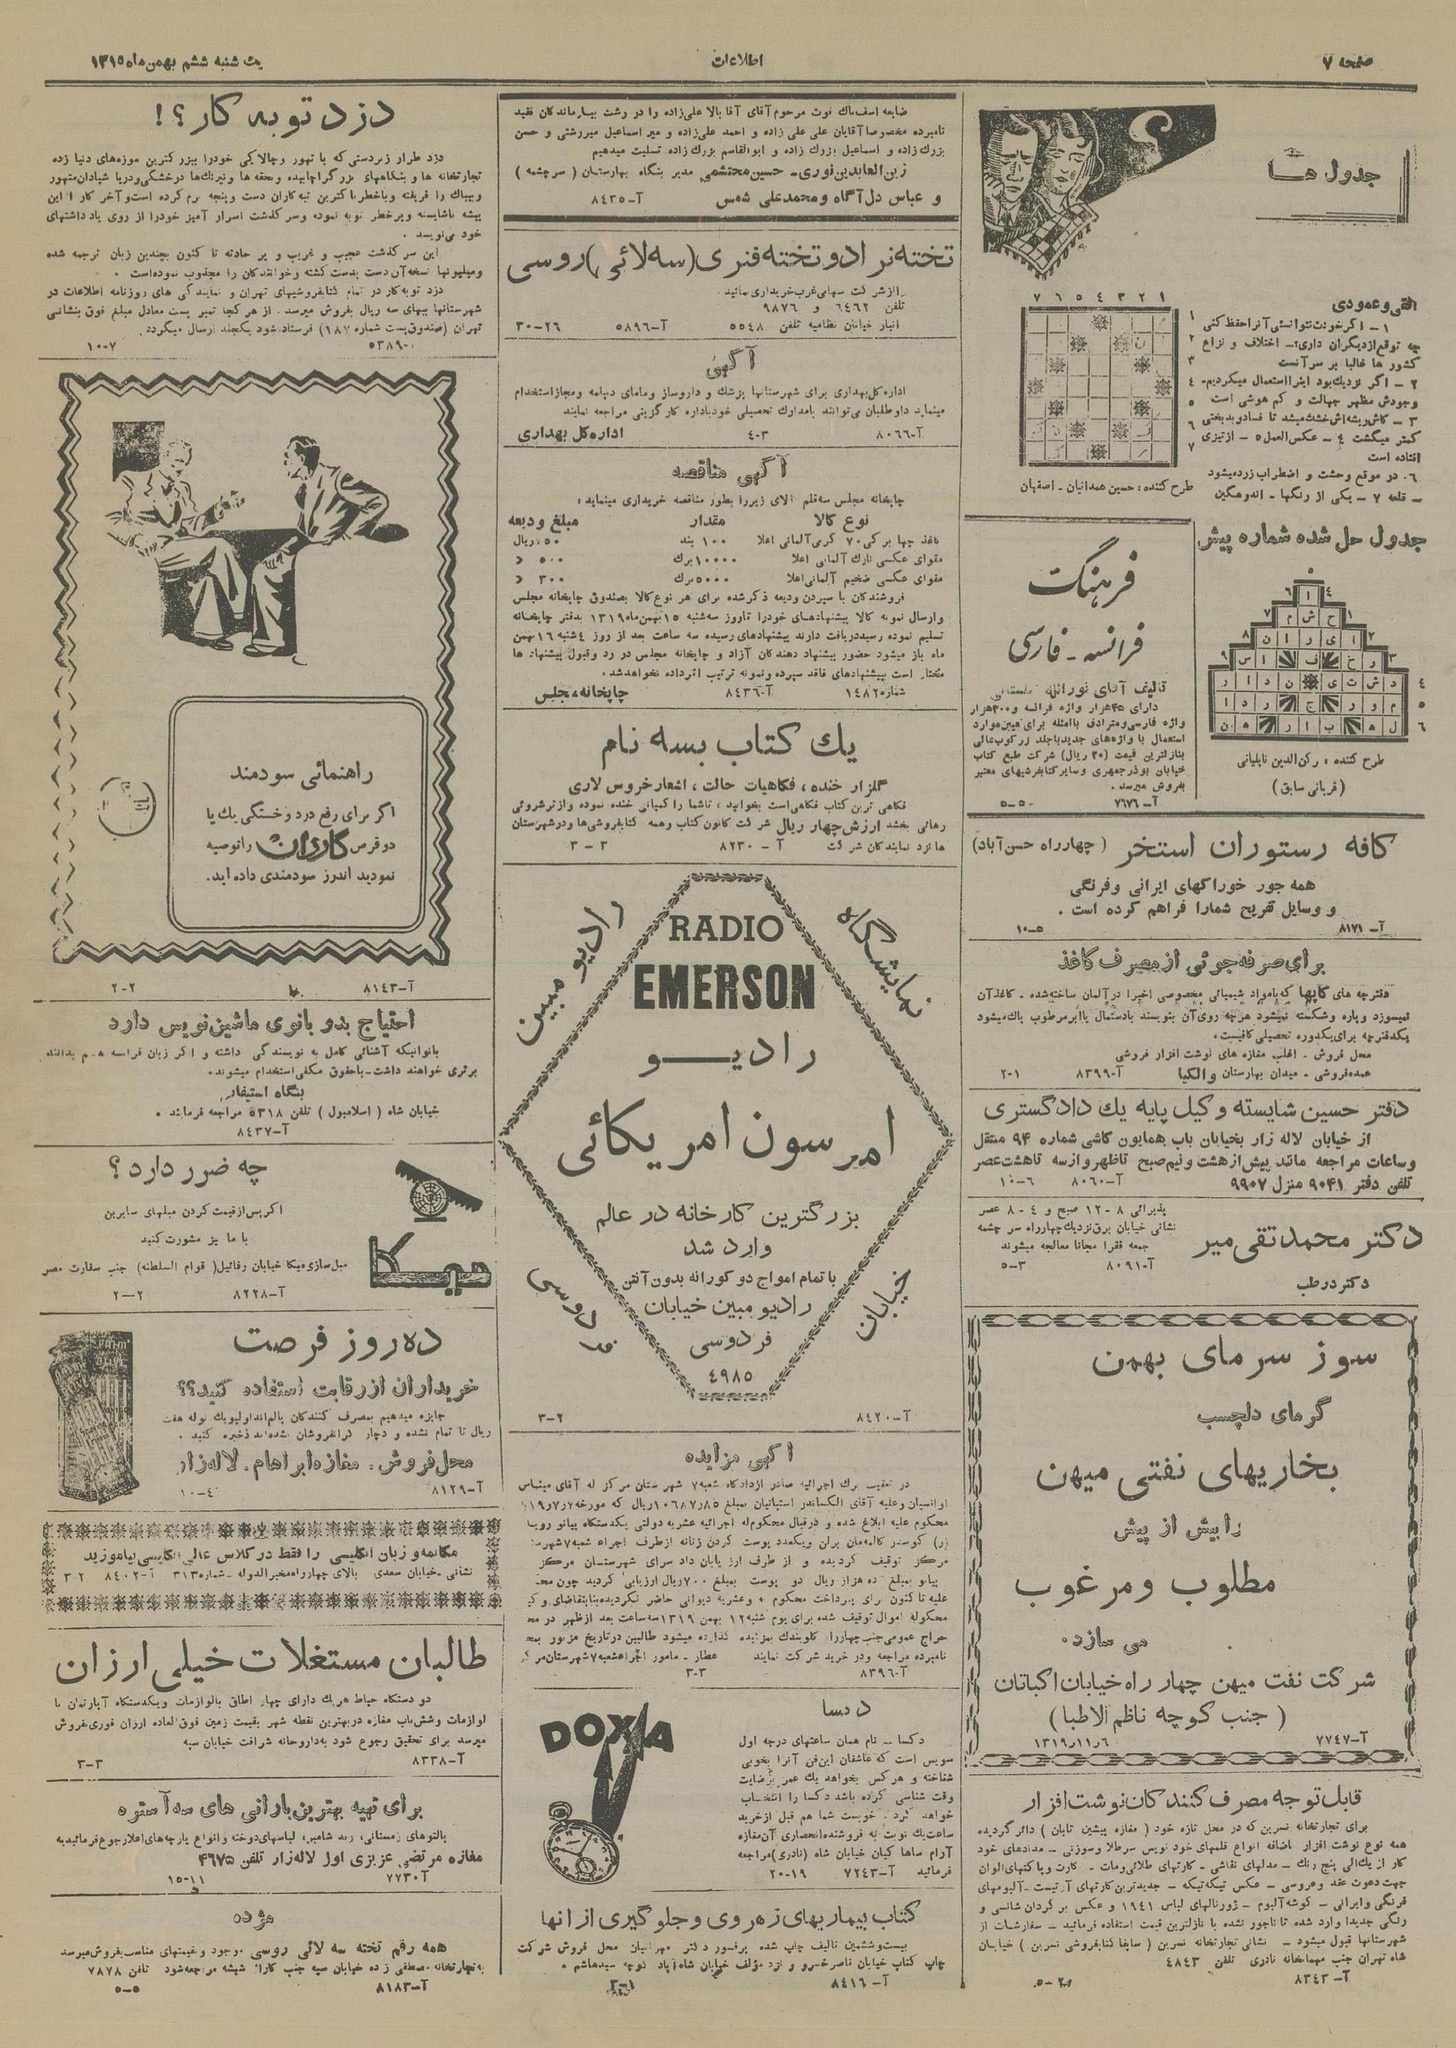 صفحه ۷
اطلاعات
یک شنبه ششم بهمن ماه ۱۳۱۵
جدول ها
افقی و عمودی
۱ – اگر خودت نتوانستی آنرا حفظ کنی
چه توقع از دیگران داری؛ – اختلاف و نزاع
کشور ها غالبا بر سر آنست
۲ – اگر نزدیک بود اینرا استعمال میکردیم –
وجودش مظهر جهالت و کم هوشی است
۳ – کاش ریشه‌اش خشک میشد تا فساد و بدبختی
کمتر میگشت ۴ – عکس العمل ۵ – از تیزی
افتاده است
۶ – در موقع وحشت و اضطراب زرد میشود
– قلعه ۷ – یکی از رنگها – اندوهگین
۱ ۲ ۳ ۴ ۵ ۶ ۷
طرح کننده : حسین همدانیان – اصفهان
جدول حل شده شماره پیش
طرح کننده :
(قربانی سابق)
فرهنگ
فرانسه – فارسی
تالیف آقای نورالله
دارای ۴۵ هزار واژه فرانسه و ۲۰۰ هزار
واژه فارسی و مترادف با امثله برای تعیین موارد
استعمال با واژه‌های جدید با جلد زرکوب عالی
بنازلترین قیمت (۳۰ ریال) شرکت طبع کتاب
خیابان بوذرجمهری و سایر کتابفرشیهای معتبر
بفروش میرسد .
آ– ۷۶۷۶ ۵–۵۰
کافه رستوران استخر (چهارراه حسن آباد)
همه جور خوراکهای ایرانی و فرنگی
و وسایل تفریح شمارا فراهم کرده است .
آ– ۸۱۷۱ ۱۰–۵
برای صرفه جوئی از مصرف کاغذ
دفترچه های که با مواد شیمیائی مخصوصی اخیرا در آلمان ساخته شده – کاغذ آن
نمیسوزد و پاره و شکسته نمیشود هرچه روی آن بنویسند با دستمال یا ابر مرطوب پاک میشود
یکدفترچه برای یکدوره تحصیلی کافیست .
محل فروش – اغلب مغازه های نوشت افزار فروشی
عمده فروشی – میدان بهارستان والکیا آ–۸۳۹۹ ۲–۱
دفتر حسین شایسته وکیل پایه یک دادگستری
از خیابان لاله زار بخیابان باب همایون کاشی شماره ۹۴ منتقل
و ساعات مراجعه مانند پیش از هشت و نیم صبح تا ظهر و از سه تا هشت عصر
تلفن دفتر ۹۰۴۱ منزل ۹۹۰۷ آ–۸۰۶۰ ۱۰–۶
دکتر محمد تقی میر
دکتر در طب
پذیرائی ۸ – ۱۲ صبح و ۴ – ۸ عصر
نشانی خیابان برق نزدیک چهارراه سر چشمه
جمعه فقرا مجانا معالجه میشوند
آ–۸۰۹۱ ۵–۳
سوز سرمای بهمن
گرمای دلچسب
بخاریهای نفتی میهن
را بیش از پیش
مطلوب و مرغوب
می سازد .
شرکت نفت میهن چهار راه خیابان اکباتان
(جنب کوچه ناظم الاطبا)
آ–۷۷۴۷ ۶ر۱۱ر۱۳۱۹
قابل توجه مصرف کنندگان نوشت افزار
برای تجارتخانه نسرین که در محل تازه خود (مغازه پیشین تابان) دائر گردیده
همه نوع نوشت افزار باضافه انواع قلمهای خود نویس سرطلا و سوزنی – مدادهای خود
کار از یک الی پنج رنگ – مدلهای نقاشی – کارتهای طلائی ومات – کارت و پاکتهای الوان
جهت دعوت عقد و عروسی – عکس تیکه تیکه – جدیدترین کارتهای آرتیست – آلبومهای
فرنگی و ایرانی – گوشه آلبوم – ژورنالهای لباس ۱۹۴۱ و عکس برگردان شانسی و
رنگی جدیدا وارد شده تا تاجور نشده با نازلترین قیمت استفاده فرمائید – سفارشات از
شهرستانها قبول میشود – نشانی تجارتخانه نسرین (سابقا کتابفروشی نسرین) خیابان
شاه تهران جنب مهمانخانه نادری تلفن ۴۸۴۳
آ–۸۳۴۳
ضایعه اسفناک فوت مرحوم آقای آقا بالا علی زاده را در رشت ببازماندگان فقید
نامبرده مخصوصا آقایان علی علی زاده و احمد علی زاده و میر اسماعیل میررشتی و حسن
بزرگ زاده و اسماعیل بزرگ زاده و ابوالقاسم بزرگ زاده تسلیت میدهیم
زین العابدین نوری – حسین محتشمی مدیر بنگاه بهارستان (سرچشمه)
و عباس دل آگاه و محمد علی شمس آ–۸۴۳۵
تخته نراد و تخته فنری (سه لائی) روسی
را از شرکت سهامی غرب خریداری نمائید .
تلفن ۶۴۶۲ و ۹۸۷۶
انبار خیابان نظامیه تلفن ۵۵۴۸ آ–۵۸۹۶ ۳۰–۲۶
آگهی
اداره کل بهداری برای شهرستانها پزشک و داروساز و مامای دیپلمه و مجاز استخدام
مینماید داوطلبان می‌توانند با مدارک تحصیلی خود باداره کارگزینی مراجعه نمایند
آ–۸۰۶۶ ۴–۳ اداره کل بهداری
آگهی مناقصه
چاپخانه مجلس سه قلم کالای زیر را بطور مناقصه خریداری مینماید :
نوع کالا مقدار مبلغ ودیعه
کاغذ چهار برگی ۷۰ گرمی آلمانی اعلا ۱۰۰ بند ۷۵۰ ریال
مقوای عکسی نازک آلمانی اعلا ۱۰۰۰۰ برگ ۵۰۰ »
مقوای عکسی ضخیم آلمانی اعلا ۵۰۰۰ برگ ۳۰۰ »
فروشندگان با سپردن ودیعه ذکر شده برای هر نوع کالا بصندوق چاپخانه مجلس
و ارسال نمونه کالا پیشنهادهای خود را تا روز سه شنبه ۱۵ بهمن ماه ۱۳۱۹ بدفتر چاپخانه
تسلیم نموده رسید دریافت دارند پیشنهادهای رسیده سه ساعت بعد از روز ۴ شنبه ۱۶ بهمن
ماه باز میشود حضور پیشنهاد دهندگان آزاد و چاپخانه مجلس در رد و قبول پیشنهاد ها
مختار است پیشنهادهای فاقد سپرده و نمونه ترتیب اثر داده نخواهد شد .
شماره ۱۴۸۲۰ آ–۸۴۳۶ چاپخانه مجلس
یک کتاب بسه نام
گلزار خنده ، فکاهیات حالت ، اشعار خروس لاری
فکاهی ترین کتاب فکاهی است بخوانید ، تا شما را کمپانی خنده نموده و از ترشروئی
رهائی بخشد ارزش چهار ریال شرکت کانون کتاب و همه کتابفروشی‌ها و در شهرستان
ها نزد نمایندگان شرکت آ – ۸۲۳۰ ۳ – ۳
نمایشگاه
رادیو مبین
خیابان
فردوسی
RADIO
EMERSON
رادیو
امرسون امریکائی
بزرگترین کارخانه در عالم
وارد شد
با تمام امواج دو کورانه بدون آنتن
رادیو مبین خیابان
فردوسی
۴۹۸۵
آ–۸۴۲۰ ۳–۲
آگهی مزایده
در تعقیب برگ اجرائیه صادر از دادگاه شعبه ۷ شهرستان مرکز له آقای میناس
اوانسیان و علیه آقای الکساندر استپانیان بمبلغ ۸۵ر۱۰۶۸۷ ریال که مورخه ۷ر۷ر۱۹
محکوم علیه ابلاغ شده و در قبال محکوم له اجرائیه عشریه دولتی یکدستگاه پیانو
مرکز توقیف گردیده و از طرف ارزیابان دادسرای شهرستان مرکز
پیانو بمبلغ ده هزار ریال دو پوست بمبلغ ۷۰۰ ریال ارزیابی گردید چون
علیه تا کنون برای پرداخت محکوم به و عشریه دیوانی حاضر نگردیده بنا بتقاضای
محکوم له اموال توقیف شده برای یوم شنبه ۱۲ بهمن ۱۳۱۹ سه ساعت بعد از ظهر در
حراج عمومی جنب چهارراه کلوبندک بمزایده گذارده میشود طالبین در تاریخ مزبور
نامبرده مراجعه و در خرید شرکت نمایند عطار – مامور اجراء شعبه ۷ شهرستان
آ–۸۳۹۶ ۳–۳
DOXA
دکسا
دکسا – نام همان ساعتهای درجه اول
سویس است که عاشقان این فن آنرا بخوبی
شناخته و هرکس بخواهد یک عمر برضایت
وقت شناسی کرده باشد دکسا را انتخاب
خواهد کرد . خوبست شما هم قبل از خرید
ساعت یک نوبت به فروشنده انحصاری آن مغازه
آرام ساهاکیان خیابان شاه (نادری) مراجعه
فرمائید آ–۷۲۴۳ ۲۰–۱۹
کتاب بیماریهای زهروی و جلوگیری از آنها
بیست و ششمین تالیف چاپ شده پرفسور دکتر محل فروش شرکت
چاپ کتاب خیابان ناصر خسرو و نزد مؤلف خیابان شاه آباد کوچه سید هاشم .
آ–۸۴۱۶
دزد توبه کار؟!
دزد طرار زبردستی که با تهور و چالاکی خود را ببزرگترین موزه‌های دنیا زده
تجارتخانه ها و بنگاههای بزرگ را چاپیده و حقه ها و نیرنگ‌ها در خشکی و دریا شیادان متهور
و بیباک را فریفته و با خطرناکترین تبه کاران دست و پنجه نرم کرده است و آخر کار از این
پیشه ناشایسته و پر خطر توبه نموده و سرگذشت اسرار آمیز خود را از روی یادداشتهای
خود می‌نویسد .
این سرگذشت عجیب و غریب و پر حادثه تا کنون بچندین زبان ترجمه شده
و میلیونها نسخه آن دست بدست گشته و خوانندگان را مجذوب نموده است .
دزد توبه کار در تمام کتابفروشیهای تهران و نمایندگی های روزنامه اطلاعات در
شهرستانها ببهای سه ریال بفروش میرسد . از هر کجا تمبر پست معادل مبلغ فوق بنشانی
تهران (صندوق پست شماره ۱۸۷) فرستاده شود یکجلد ارسال میگردد .
۵۳۸۹ ۱۰–۷
راهنمائی سودمند
اگر برای رفع درد و خستگی یک یا
دو قرص کاردان را توصیه
نمودید اندرز سودمندی داده اید .
آ–۸۱۴۳ ۲–۲
احتیاج بدو بانوی ماشین نویس دارد
بانوانیکه آشنائی کامل به نویسندگی داشته و اگر زبان فرانسه هم بدانند
برتری خواهند داشت – با حقوق مکفی استخدام میشوند .
بنگاه استیفار
خیابان شاه (اسلامبول) تلفن ۵۳۱۸ مراجعه فرمایند .
آ–۸۴۳۷
چه ضرر دارد؟
اگر پس از قیمت کردن مبلهای سایرین
با ما نیز مشورت کنید
میکا
مبل سازی میکا خیابان رفائیل (قوام السلطنه) جنب سفارت مصر
آ–۸۲۲۸ ۲–۲
ده روز فرصت
خریداران از رقابت استفاده کنید؟؟
جایزه میدهیم بمصرف کنندگان
ریال تا تمام نشده و دچار گرانفروشان نشده‌اند ذخیره کنید .
محل فروش . مغازه ابراهام . لاله زار
آ–۸۱۲۹ ۱۰–۴
مکالمه و زبان انگلیسی را فقط در کلاس عالی انگلیسی بیاموزید
نشانی – خیابان سعدی بالای چهارراه مخبرالدوله – شماره ۳۱۳ آ–۸۴۰۲ ۳–۲
طالبان مستغلات خیلی ارزان
دو دستگاه حیاط هریک دارای چهار اطاق با لوازمات و یکدستگاه آپارتمان با
لوازمات و شش باب مغازه در بهترین نقطه شهر بقیمت زمین فوق العاده ارزان فوری بفروش
میرسد برای تحقیق رجوع شود به داروخانه شرافت خیابان سپه
آ–۸۳۳۸ ۳–۳
برای تهیه بهترین بارانی های سه آستره
پالتوهای زمستانی ، ربدشامبر ، لباسهای دوخته و انواع پارچه‌های اعلا رجوع فرمائید به
مغازه مرتضی عزیزی اول لاله زار تلفن ۴۶۷۵
آ–۷۷۳۰ ۱۵–۱۱
مژده
همه رقم تخته سه لائی روسی موجود و بقیمتهای مناسب بفروش میرسد
به تجارتخانه مصطفی زاده خیابان سپه جنب شیشه مراجعه شود تلفن ۷۸۷۸
آ–۸۱۸۳ ۵–۵